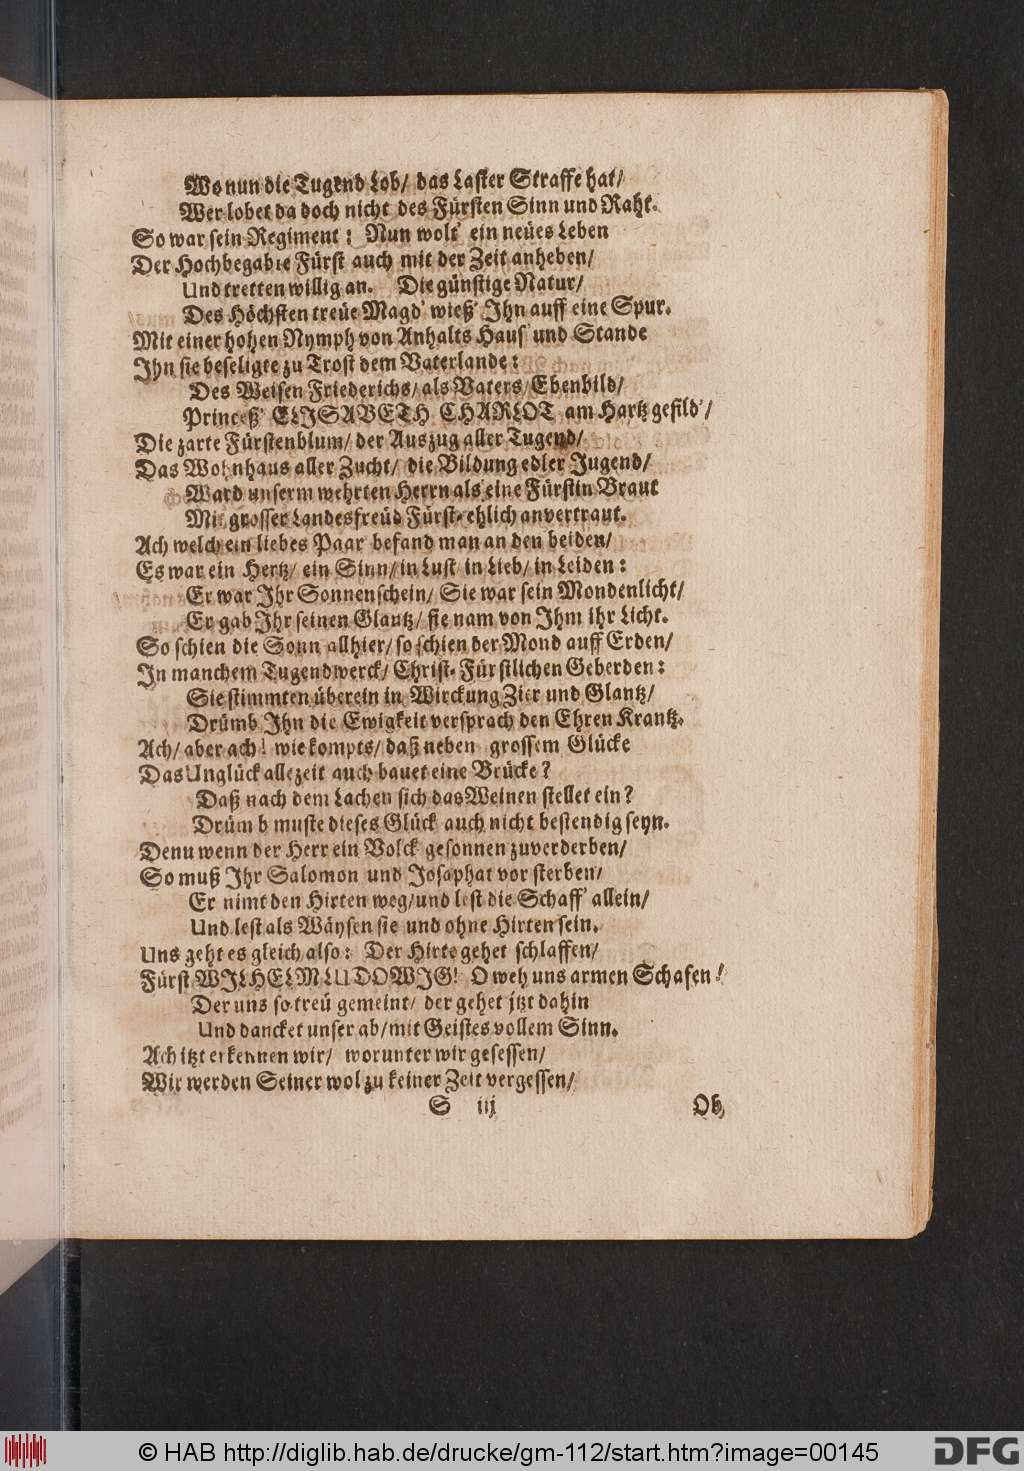 Wo nun die Tugend Lob/ das Laster Straffe hat/
Wer lobet da doch nicht des Fürsten Sinn und Raht.
So war sein Regiment: Nun wolt' ein neües Leben
Der Hochbegabte Fürst auch mit der Zeit anheben/
Und tretten willig an. Die günstige Natur/
Des Höchsten treüe Magd' wieß' Ihn auff eine Spur.
Mit einer hohen Nymph von Anhalts Haus' und Stande
Ihn sie beseligte zu Trost dem Vaterlande:
Des Weisen Friederichs/ als Vaters/ Ebenbild/
Princeß' ELISABETH CHARLOT am Hartz gefild'/
Die zarte Fürstenblum/ der Auszug aller Tugend/
Das Wohnhaus aller Zucht/ die Bildung edler Jugend/
Ward unserm wehrten Herrn als eine Fürstin Braut
Mit grosser Landesfreüd Fürst-ehlich anvertraut.
Ach welch ein liebes Paar befand man an den beiden/
Es war ein Hertz/ ein Sinn/ in Lust/ in Lieb/ in Leiden:
Er war Ihr Sonnenschein/ Sie war sein Mondenlicht/
Er gab Ihr seinen Glantz/ sie nam von Ihm ihr Licht.
So schien die Sonn allhier/ so schien der Mond auff Erden/
In manchem Tugendwerck/ Christ-Fürstlichen Geberden:
Sie stimmten überein in Wirckung Zier und Glantz/
Drümb Ihn die Ewigkeit versprach den Ehren Krantz.
Ach/ aber ach! wie kompts/ daß neben grossem Glücke
Das Unglück allezeit auch bauet eine Brücke?
Daß nach dem Lachen sich das Weinen stellet ein?
Drüm b muste dieses Glück auch nicht bestendig seyn.
Denu wenn der Herr ein Volck gesonnen zuverderben/
So muß Ihr Salomon und Josaphat vor sterben/
Er nimt den Hirten weg/ und lest die Schaff' allein/
Und lest als Wäysen sie und ohne Hirten sein.
Uns geht es gleich also: Der Hirte gehet schlaffen/
Fürst WILHELM LUDOWIG! O weh uns armen Schafen!
Der uns so treü gemeint/ der gehet jtzt dahin
Und dancket unser ab/ mit Geistes vollem Sinn.
Ach itzt erkennen wir/ worunter wir gesessen/
Wir werden Seiner wol zu keiner Zeit vergessen/
S iij Ob
© HAB http://diglib.hab.de/drucke/gm-112/start.htm?image=00145 DFG